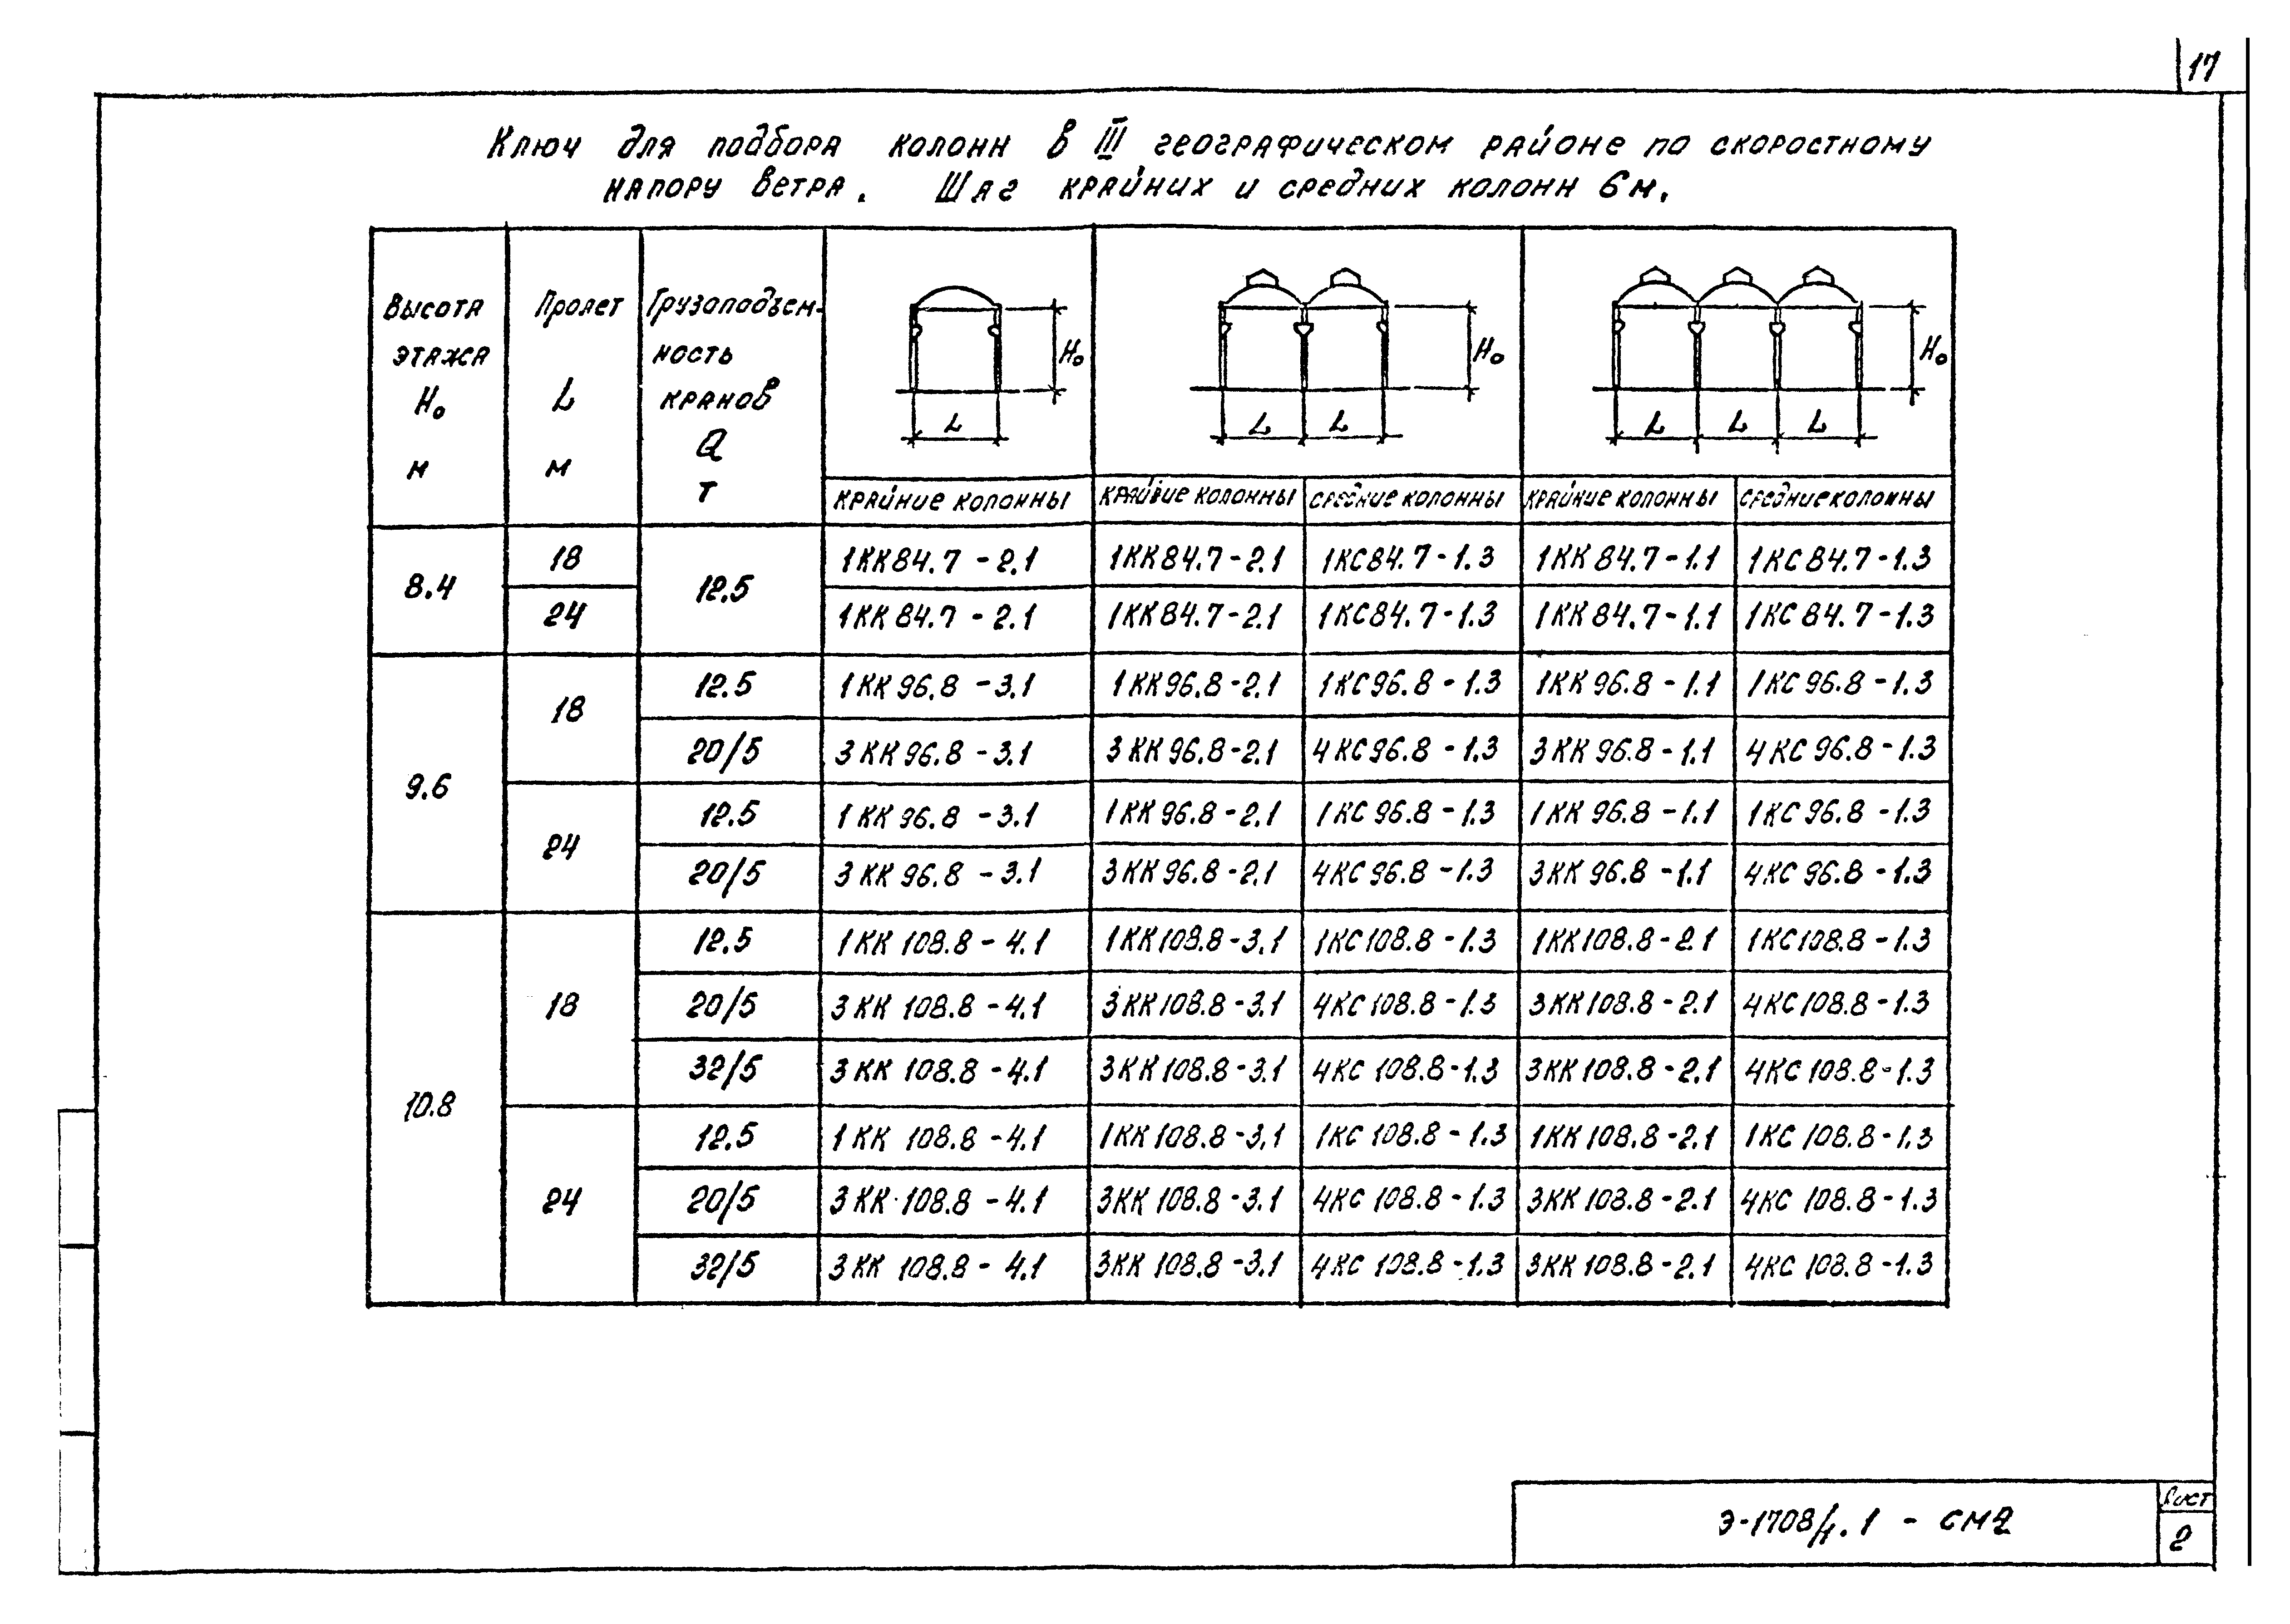 17
Ключ для подбора колонн в III географическом районе по скоростному
напору ветра. Шаг крайних и средних колонн 6м.
Высота этажа H₀ м
Пролет L м
Грузоподъем- ность кранов Q т
L H₀
L L H₀
L L L H₀
крайние колонны крайние колонны средние колонны крайние колонны средние колонны
8.4 18 12.5 1КК84.7-2.1 1КК84.7-2.1 1КС84.7-1.3 1КК84.7-1.1 1КС84.7-1.3
24 1КК84.7-2.1 1КК84.7-2.1 1КС84.7-1.3 1КК84.7-1.1 1КС84.7-1.3
9.6 18 12.5 1КК96.8-3.1 1КК96.8-2.1 1КС96.8-1.3 1КК96.8-1.1 1КС96.8-1.3
20/5 3КК96.8-3.1 3КК96.8-2.1 4КС96.8-1.3 3КК96.8-1.1 4КС96.8-1.3
24 12.5 1КК96.8-3.1 1КК96.8-2.1 1КС96.8-1.3 1КК96.8-1.1 1КС96.8-1.3
20/5 3КК96.8-3.1 3КК96.8-2.1 4КС96.8-1.3 3КК96.8-1.1 4КС96.8-1.3
10.8 18 12.5 1КК108.8-4.1 1КК108.8-3.1 1КС108.8-1.3 1КК108.8-2.1 1КС108.8-1.3
20/5 3КК108.8-4.1 3КК108.8-3.1 4КС108.8-1.3 3КК108.8-2.1 4КС108.8-1.3
32/5 3КК108.8-4.1 3КК108.8-3.1 4КС108.8-1.3 3КК108.8-2.1 4КС108.8-1.3
24 12.5 1КК108.8-4.1 1КК108.8-3.1 1КС108.8-1.3 1КК108.8-2.1 1КС108.8-1.3
20/5 3КК108.8-4.1 3КК108.8-3.1 4КС108.8-1.3 3КК108.8-2.1 4КС108.8-1.3
32/5 3КК108.8-4.1 3КК108.8-3.1 4КС108.8-1.3 3КК108.8-2.1 4КС108.8-1.3
Э-1708/4.1 - СМ2
Лист
2